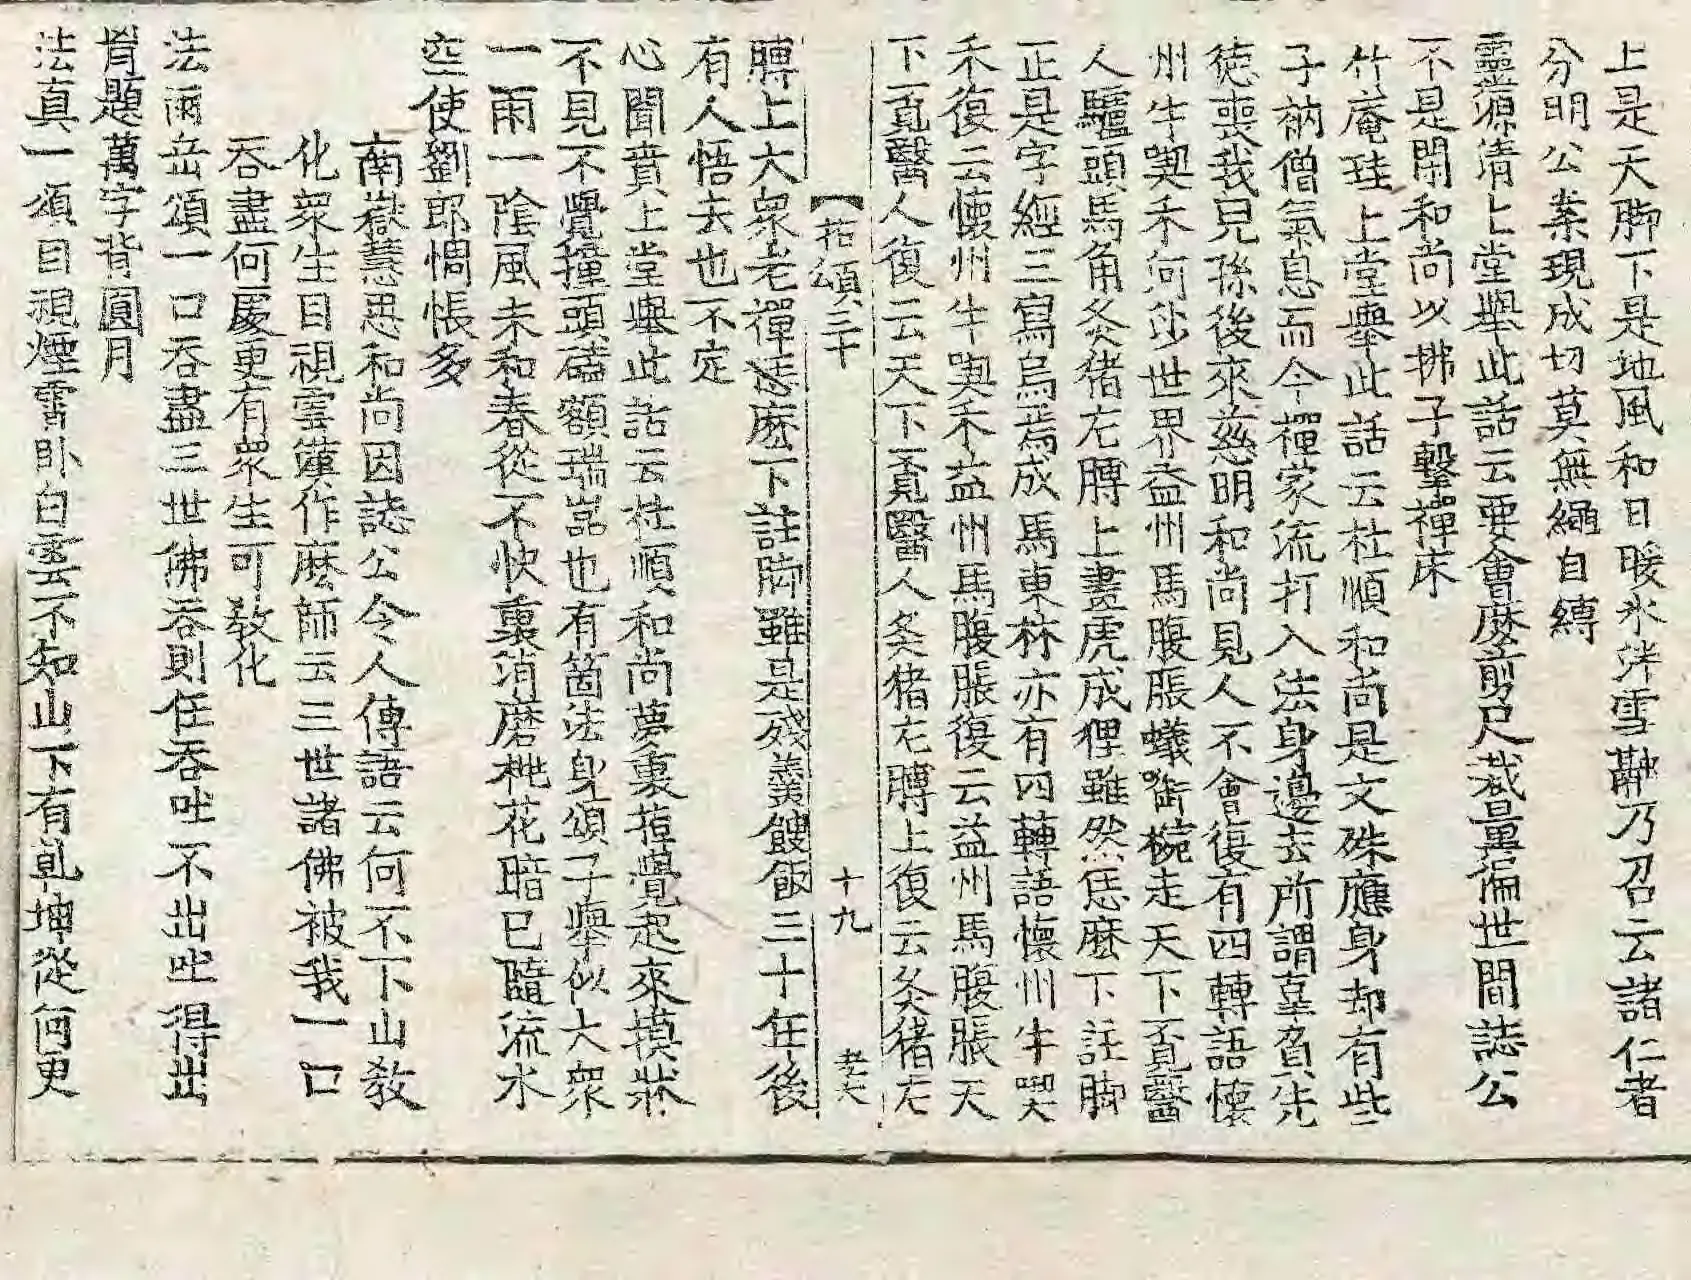 上是天脚下是地風和日暖氷泮雪融乃召云諸仁者
分明公案現成切莫無繩自縛
靈源淸上堂擧此話云要會麽剪尺裁量徧世間誌公
不是閑和尚以拂子擊禪床
竹庵珪上堂擧此話云杜順和尚是文殊應身却有些
子衲僧氣息而今禪家流打入法身邊去所謂辜負先
德喪我兒孫後來慈明和尚見人不會復有四轉語懷
州牛喫禾何沙世界益州馬腹脹蟻㘅椀走天下覔醫
人驢頭馬角灸猪左膊上畫虎成狸雖然恁麽下註脚
正是字經三寫烏焉成馬東林亦有四轉語懷州牛喫
禾復云懷州牛喫禾益州馬腹脹復云益州馬腹脹天
下覔醫人復云天下覔醫人灸猪左膊上復云灸猪左
【拈頌三十　十九
膊上大衆老禪恁麽下註脚雖是殘羹餿飯三十年後
有人悟去也不定
心聞賁上堂擧此話云杜順和尚夢裏 覺起來摸牀
不見不覺撞頭磕額瑞嵓也有箇法身頌子擧似大衆
一雨一陰風未和春從不快裏消磨桃花暗已隨流水
空使劉郎惆悵多
南嶽慧思和尚因誌公令人傳語云何不下山敎
化衆生目視雲漢作麽師云三世諸佛被我一口
吞盡何處更有衆生可敎化
法雨岳頌一口吞盡三世佛吞則任吞吐不出吐得出
背題萬字背圓月
法眞一頌目視煙霄卧白雲不知山下有乾坤從何更